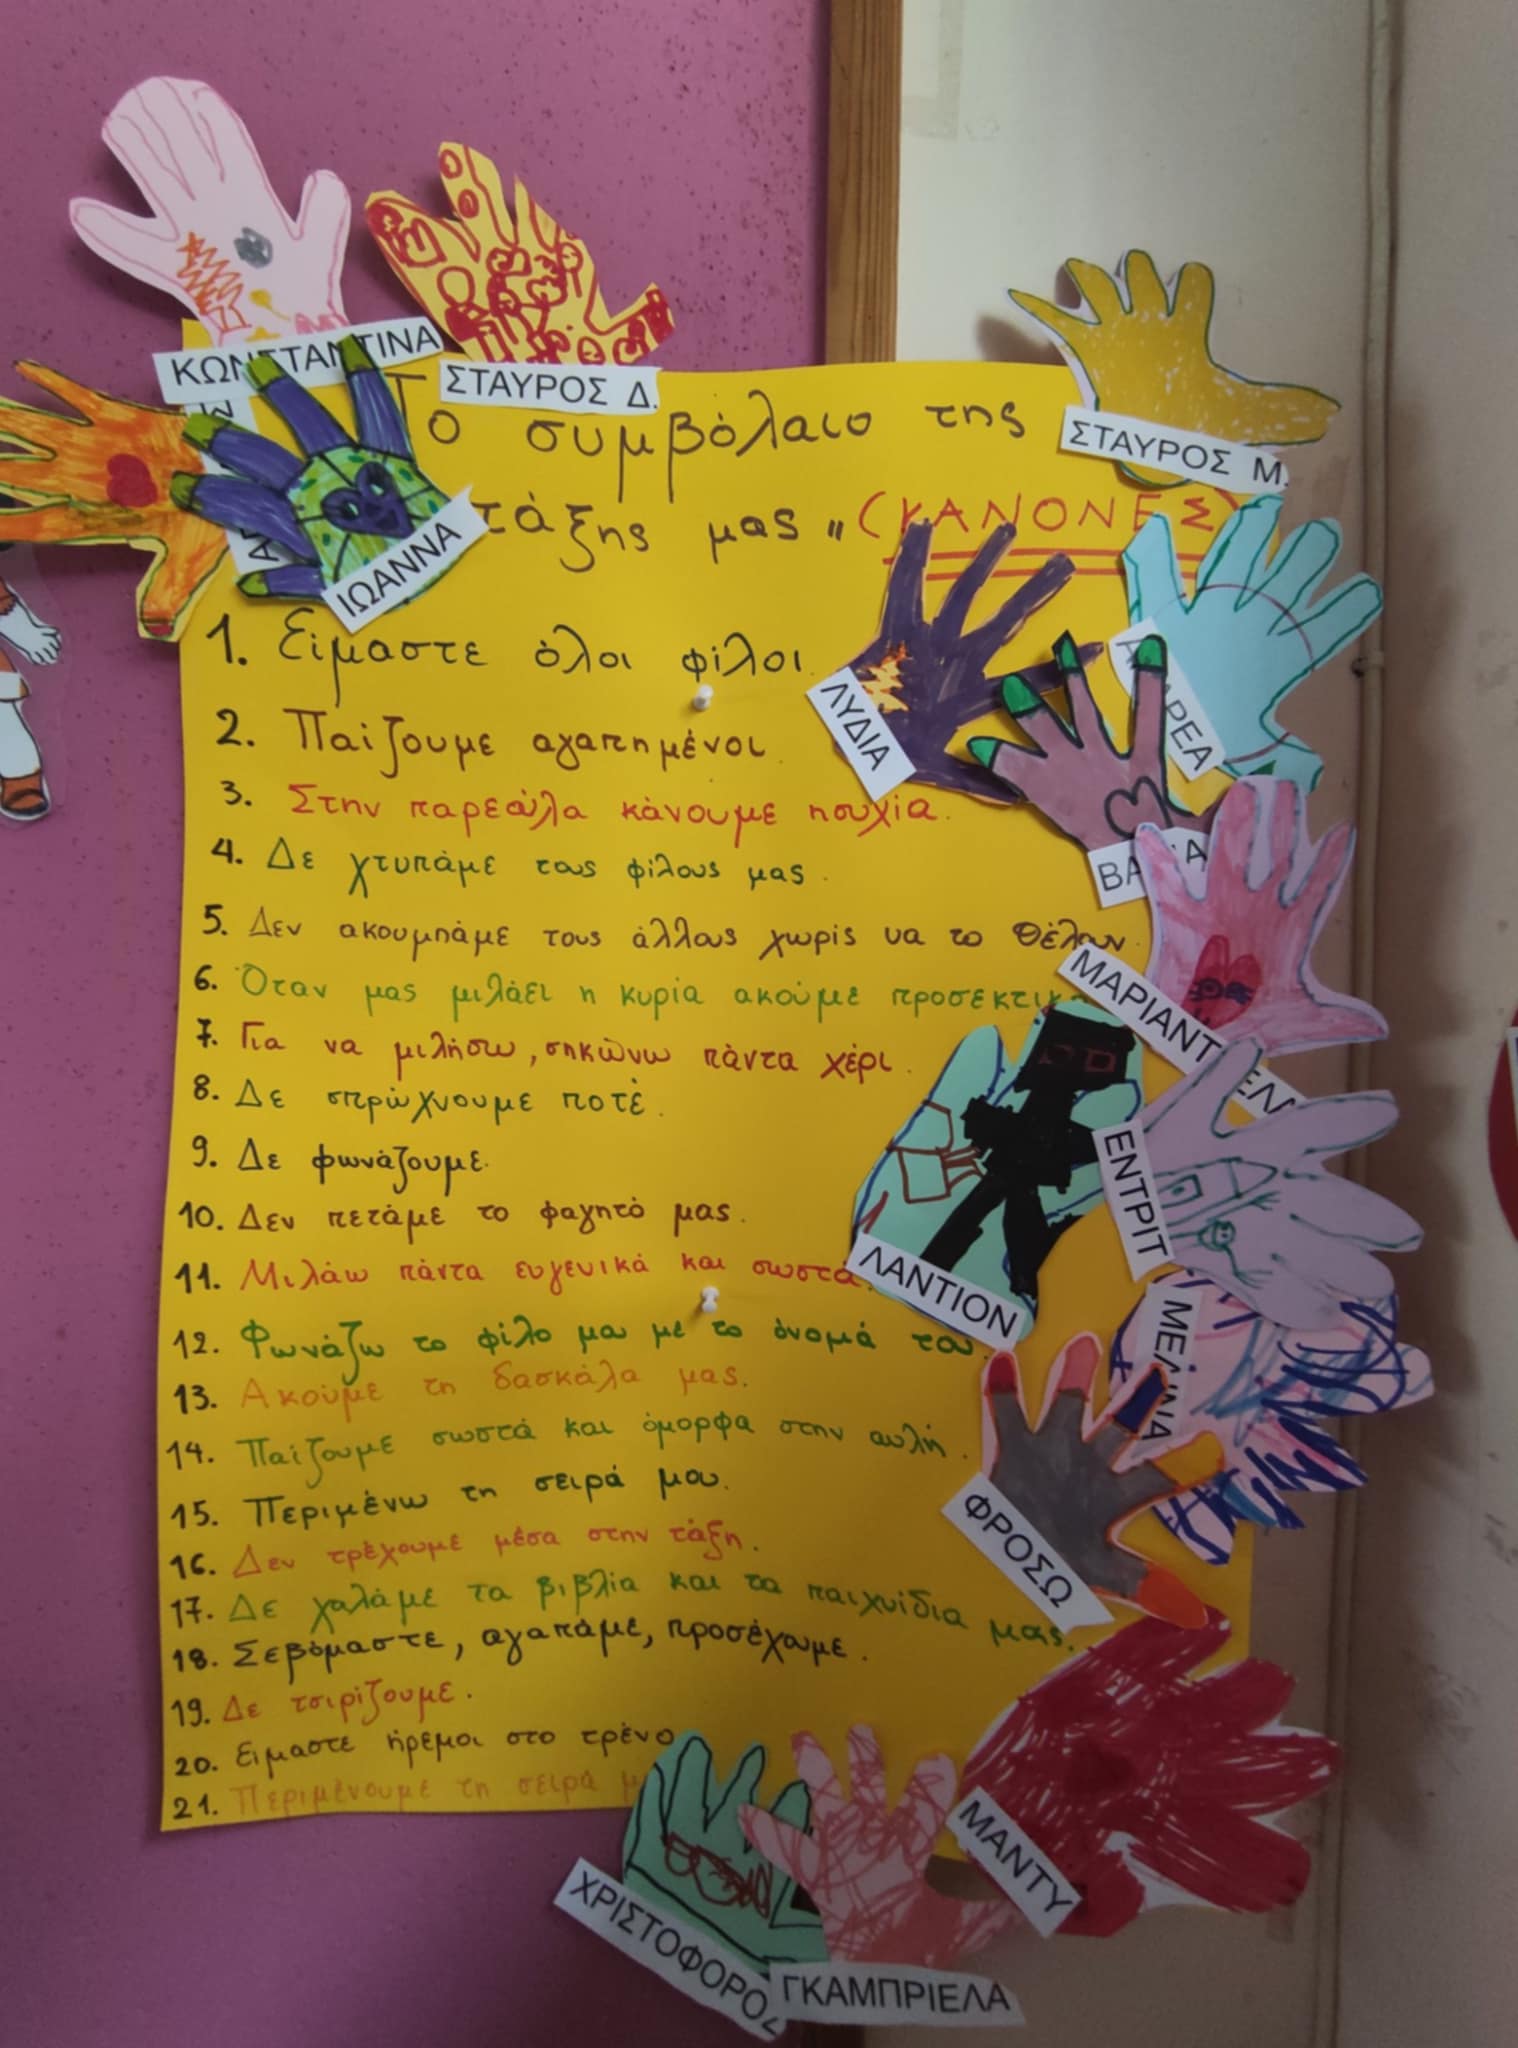 ΚΩΝΣΤΑΝΤΙΝΑ
ΣΤΑΥΡΟΣ Δ.
ΣΤΑΥΡΟΣ Μ.
ΙΩΑΝΝΑ
Το συμβόλαιο της
τάξης μας " (ΚΑΝΟΝΕΣ)
1. Είμαστε όλοι φίλοι.
2. Παίζουμε αγαπημένοι.
3. Στην παρεούλα κάνουμε ησυχία.
4. Δε χτυπάμε τους φίλους μας.
5. Δεν ακουμπάμε τους άλλους χωρίς να το θέλουν.
6. Όταν μας μιλάει η κυρία ακούμε προσεκτικά
7. Για να μιλήσω, σηκώνω πάντα χέρι.
8. Δε σπρώχνουμε ποτέ.
9. Δε φωνάζουμε.
10. Δεν πετάμε το φαγητό μας.
11. Μιλάω πάντα ευγενικά και σωστά.
12. Φωνάζω το φίλο μου με το όνομά του.
13. Ακούμε τη δασκάλα μας.
14. Παίζουμε σωστά και όμορφα στην αυλή.
15. Περιμένω τη σειρά μου.
16. Δεν τρέχουμε μέσα στην τάξη.
17. Δε χαλάμε τα βιβλία και τα παιχνίδια μας.
18. Σεβόμαστε, αγαπάμε, προσέχουμε.
19. Δε τσιρίζουμε.
20. Είμαστε ήρεμοι στο τρένο
21. Περιμένουμε τη σειρά
ΛΥΔΙΑ
ΕΝΤΡΙΤ
ΛΑΝΤΙΟΝ
ΜΕΛΙΝΑ
ΦΡΟΣΩ
ΜΑΝΤΥ
ΧΡΙΣΤΟΦΟΡΟΣ
ΓΚΑΜΠΡΙΕΛΑ